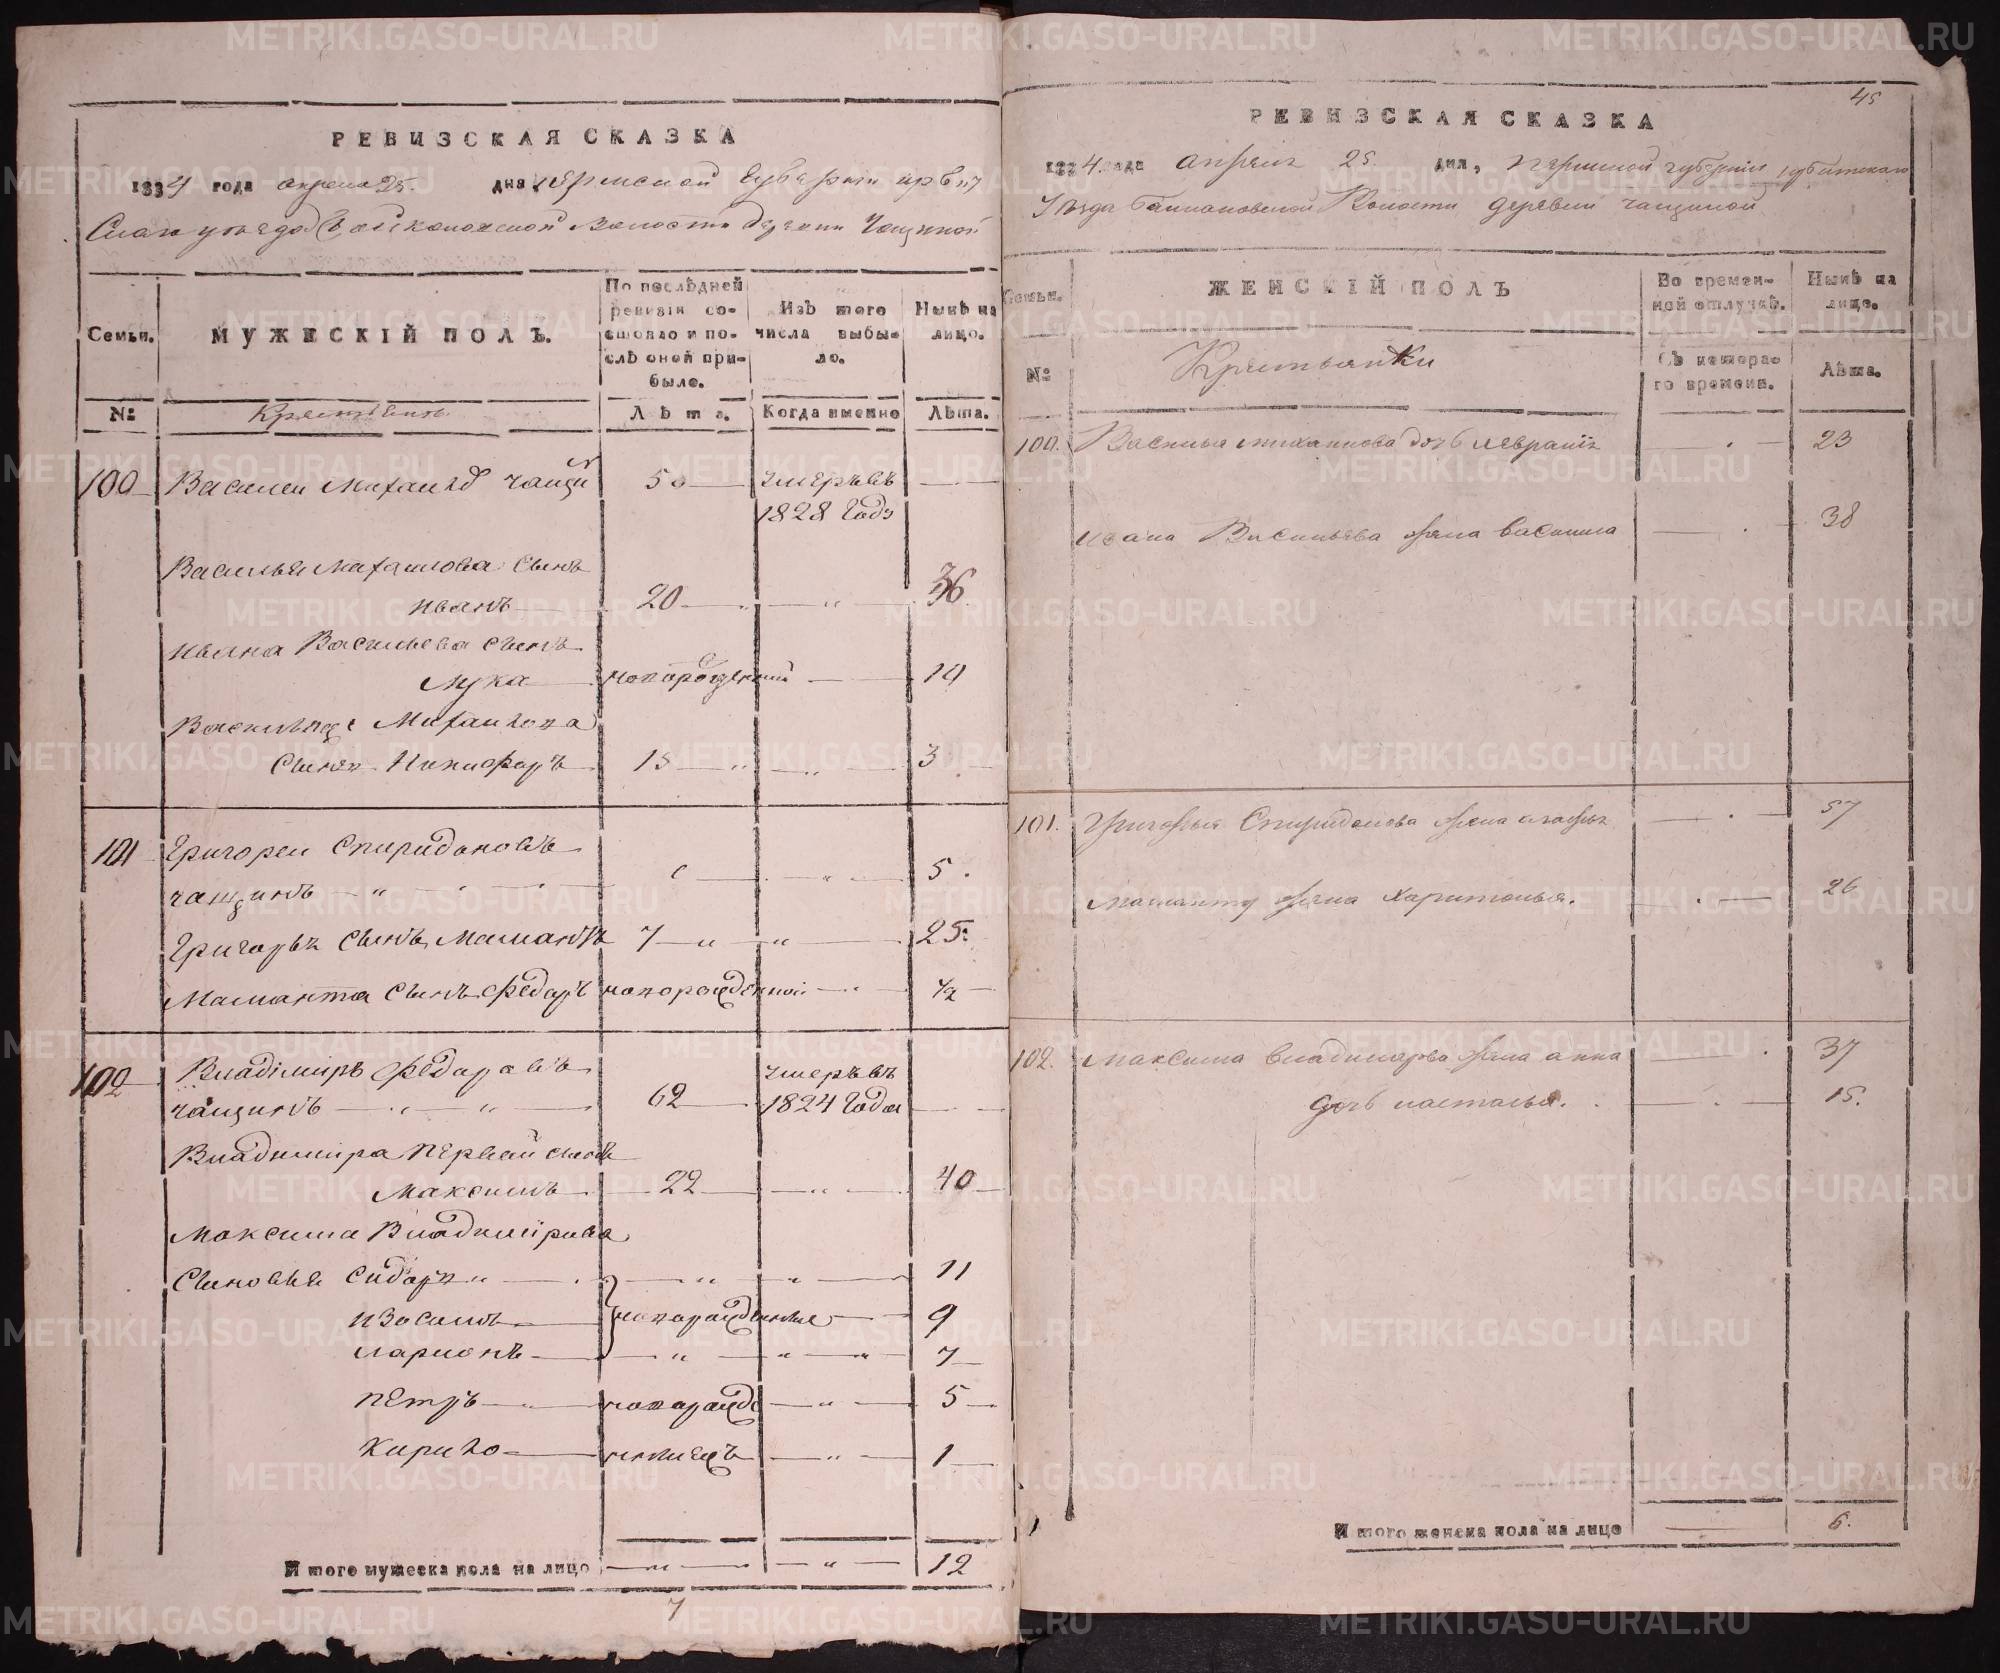 РЕВИЗСКАЯ СКАЗКА
1834 года апреля 25. дня, пермской Губернии ирбит
скаго уезда волости деревни Чащиной
Семьи.
МУЖЕСКІЙ ПОЛЪ.
По послѣдней ревизіи состояло и послѣ оной прибыло.
Изъ того числа выбыло.
Нынѣ на лицо.
№
Крестьянъ
Лѣта.
Когда именно
Лѣта.
100 Василеи Михаиловъ чащин 50 умеръ въ
1828 Году
Василья Михаилова сынъ
иванъ 20 36
ивана Васильева сынъ
лука новорожденный 14
Василья Михаилова
Сынъ Никифаръ 3
101 Григореи Спиридоновъ
чащинъ 5
Григорья сынъ Мамантъ 7 25
Маманта сынъ Федаръ новорожденной 1/2
102 Владімиръ Федаровъ 62 умеръ въ
чащинъ 1824 Году
Владимира первеи сынъ
Максимъ 22 40
Максима Владимірова
Сыновья Сидаръ 11
изосимъ новорожденые 9
Ларионъ 7
петръ новорожде 5
Кирило 1
И того мужеска пола на лицо 12
7
45
РЕВИЗСКАЯ СКАЗКА
1834 года апреля 25. дня, пермской губернии ирбитскаго
Уезда Волости деревни чащиной
Семьи.
ЖЕНСКІЙ ПОЛЪ
Во временной отлучкѣ.
Нынѣ на лицо.
№
Крестьянки
Съ котораго времени.
Лѣта.
100. Василья михаилова дочь 23
ивана Васильева жена васильиса 38
101. Григорья Спиридонова жена 57
маманта жена Харитонья. 26
102. Максима владимирова жена анна 37
дочь настасья. 15.
И того женска пола на лицо 6.
METRIKI.GASO-URAL.RU